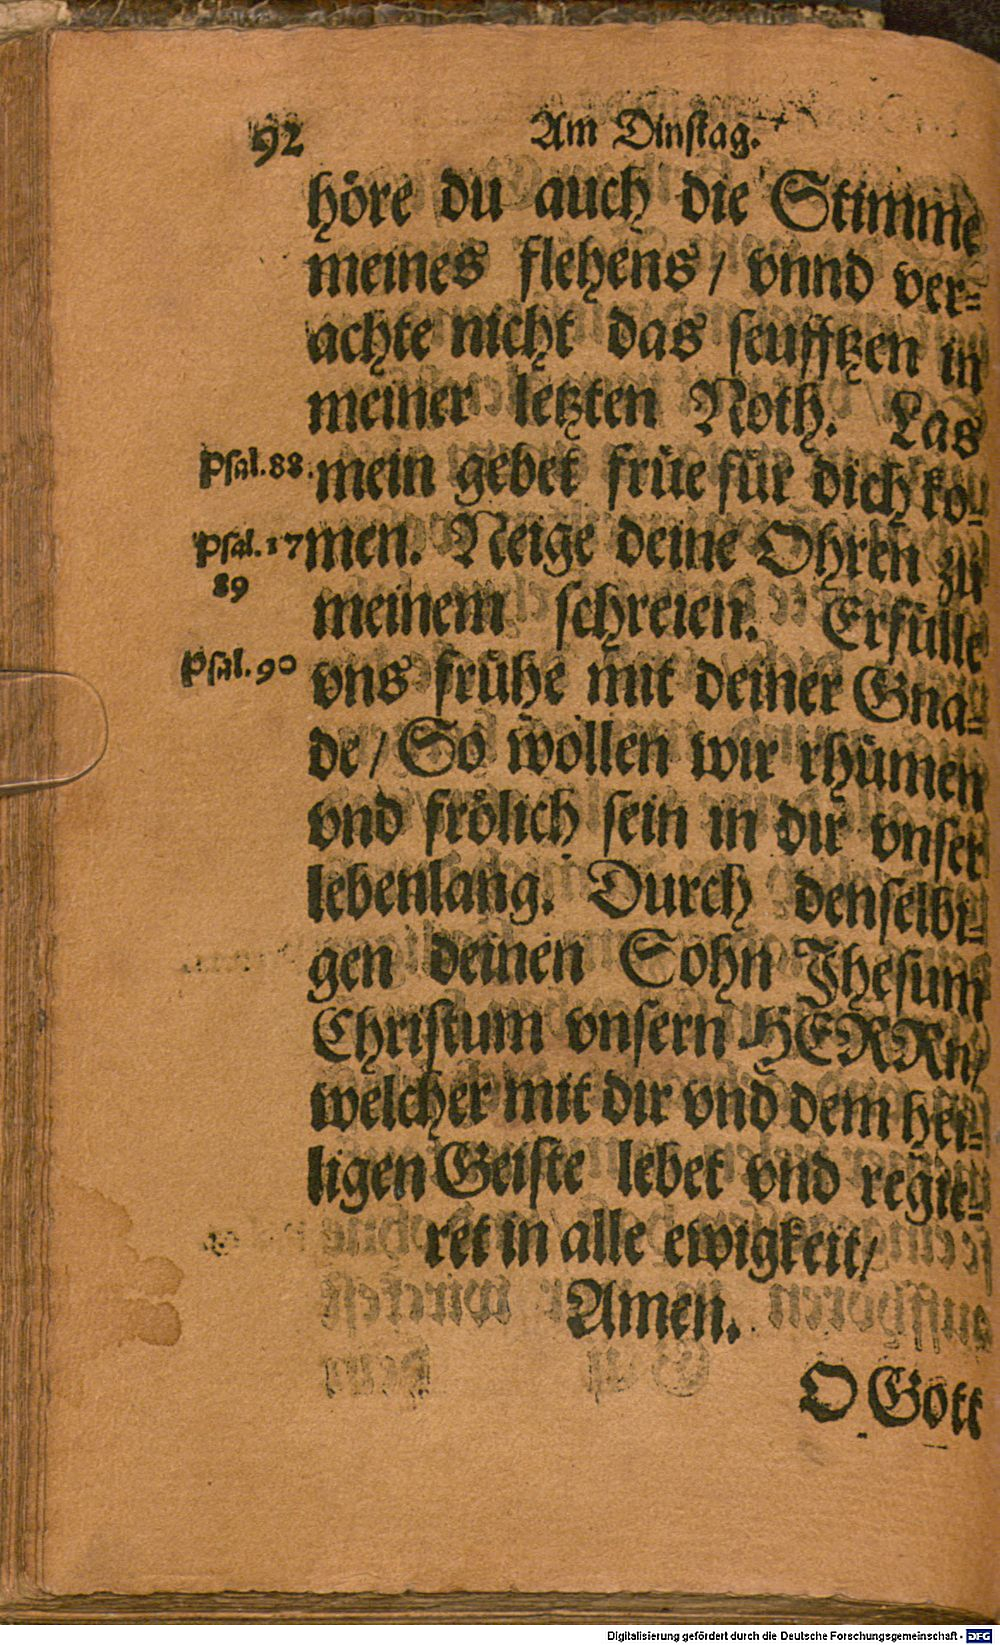 92
Am Dinstag.
höre du auch die Stimme
meines flehens / vnnd ver-
achte nicht das seufftzen in
meiner letzten Noth. Las
Psal.88. mein gebet früe für dich ko-
Psal.17 men. Neige deine Ohren zu
89 meinem schreien. Erfülle
Psal.90 vns frühe mit deiner Gna-
de / So wöllen wir rhümen
vnd frölich sein in dir vnser
lebenlang. Durch denselbi-
gen deinen Sohn Jhesum
Christum vnsern HERRn /
welcher mit dir vnd dem hei-
ligen Geiste lebet vnd regie-
ret in alle ewigkeit /
Amen.
O Gott
Digitalisierung gefördert durch die Deutsche Forschungsgemeinschaft - DFG